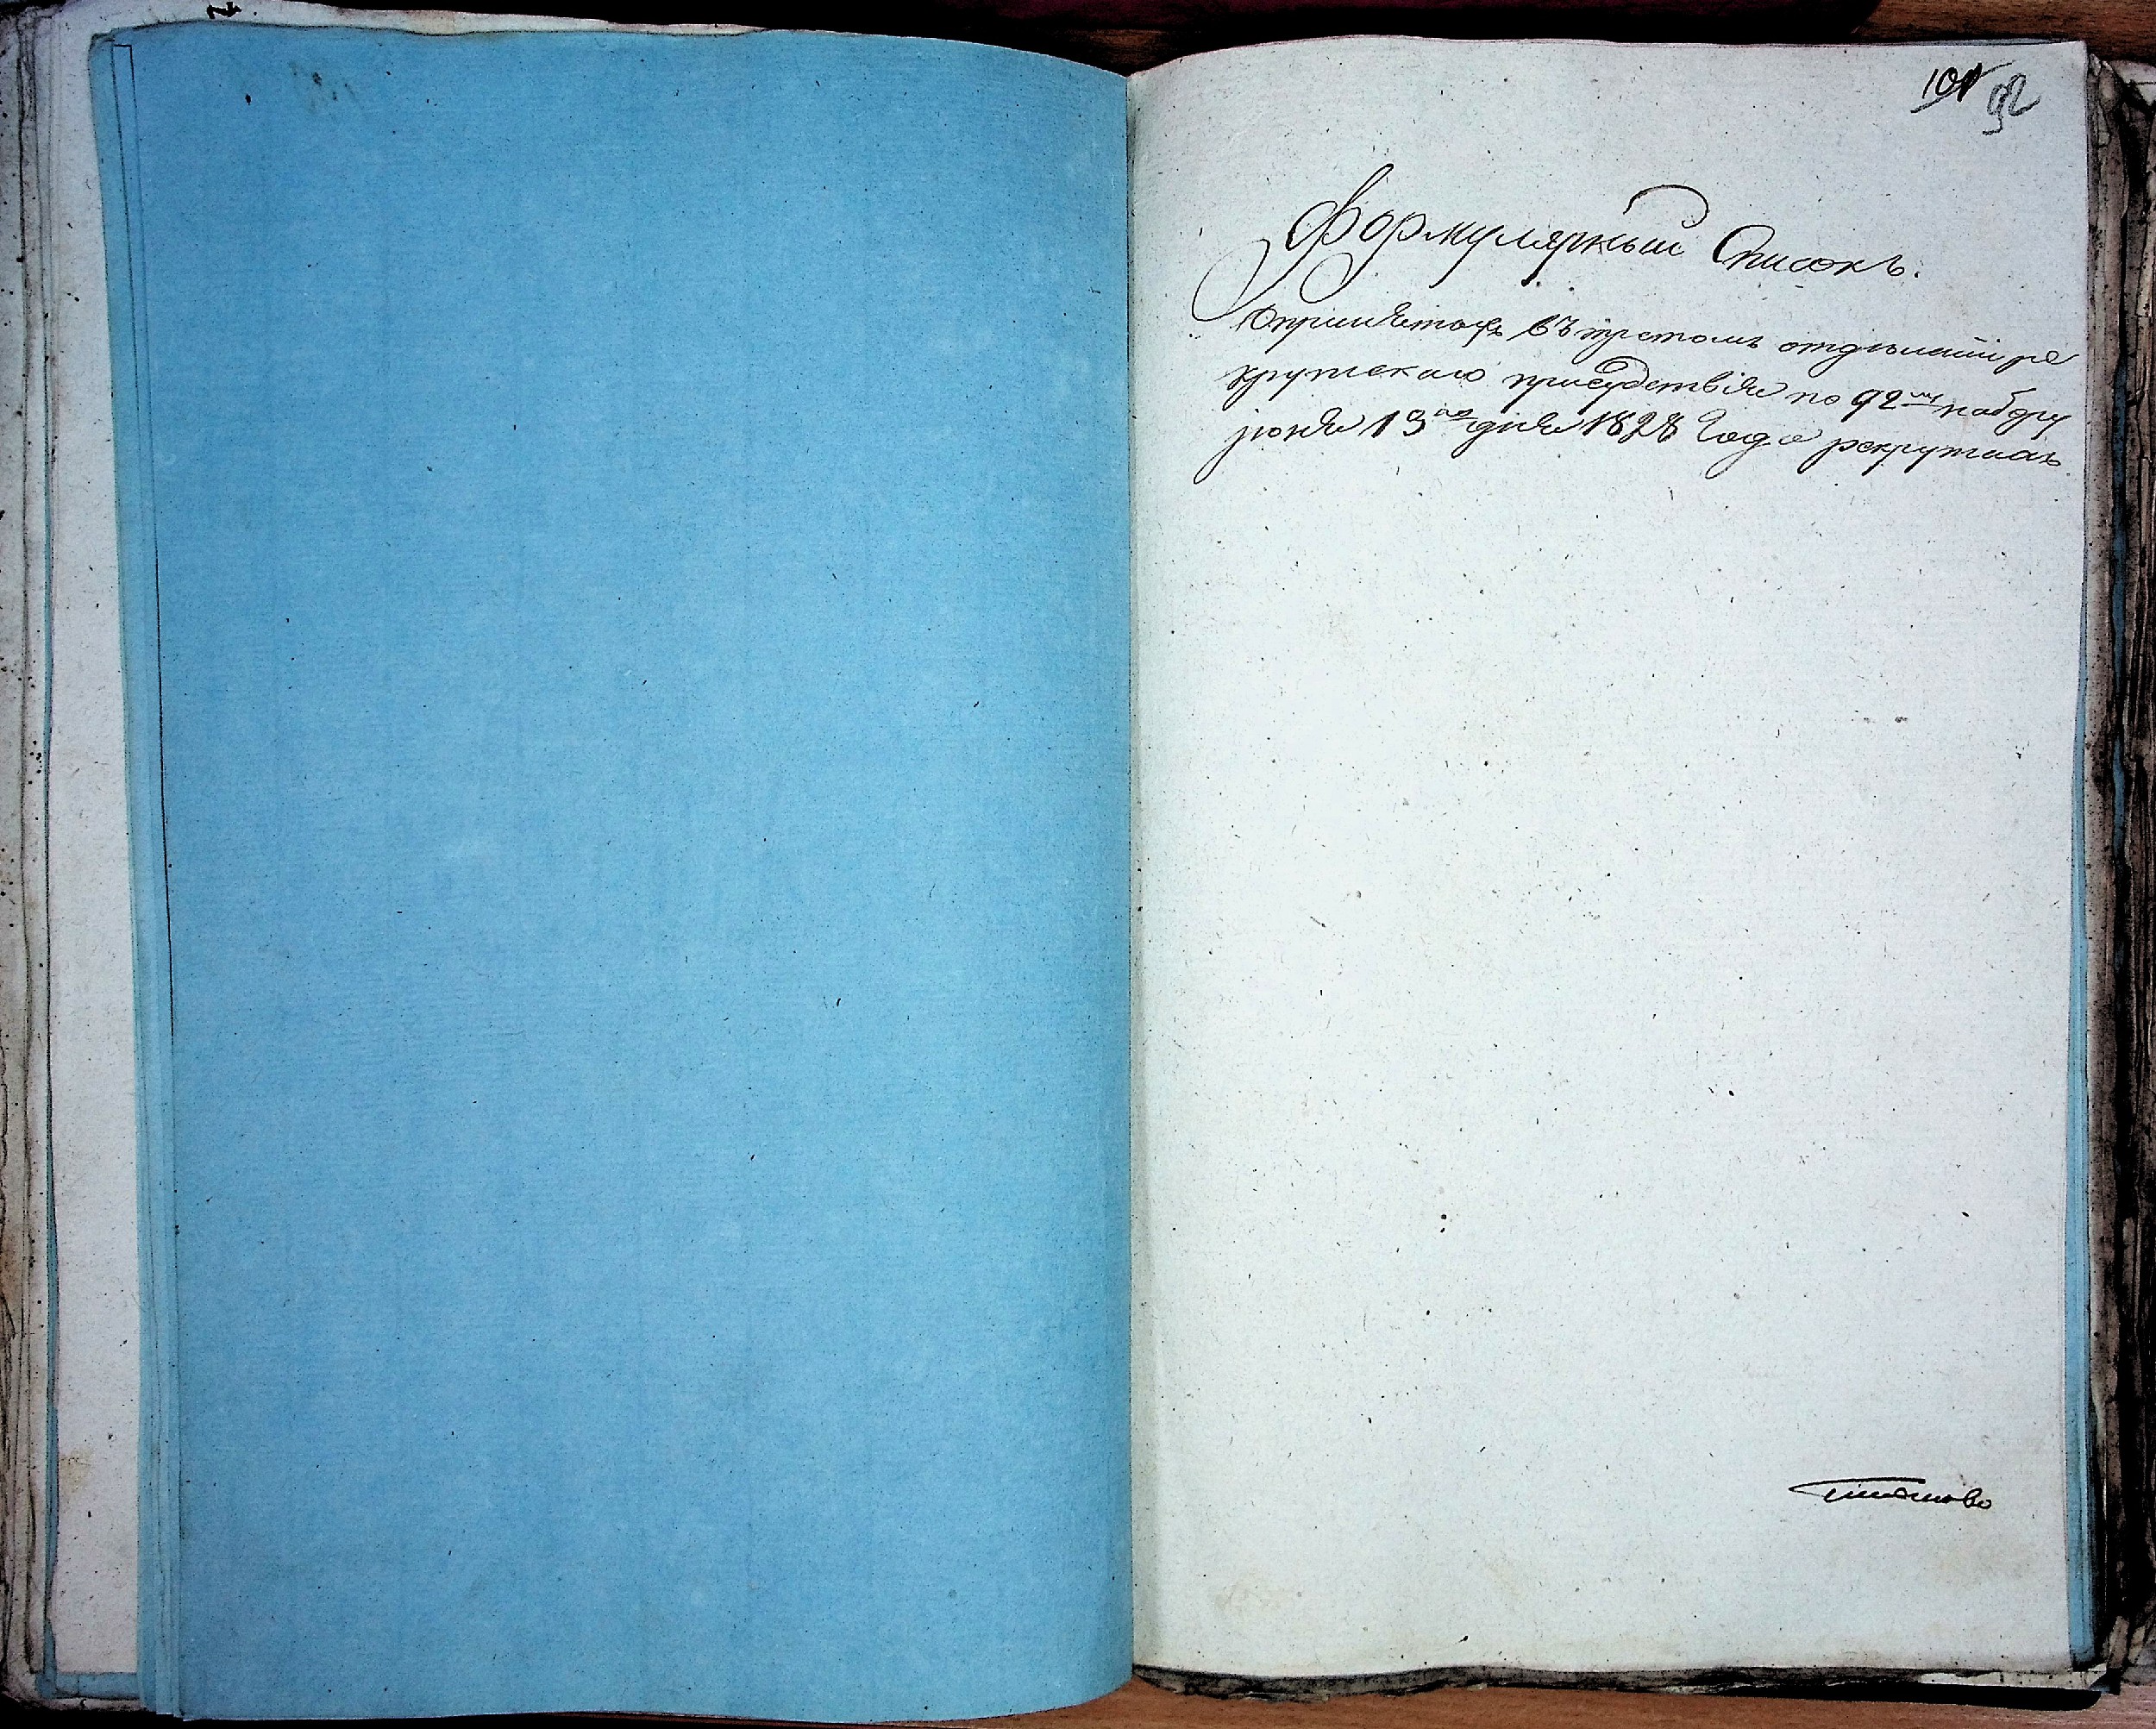 101 92
Формулярный Списокъ.
О принятыхъ въ третомъ отделении ре
крутскаго присудствия по 92му набору
июня 13го дня 1828 года рекрутахъ